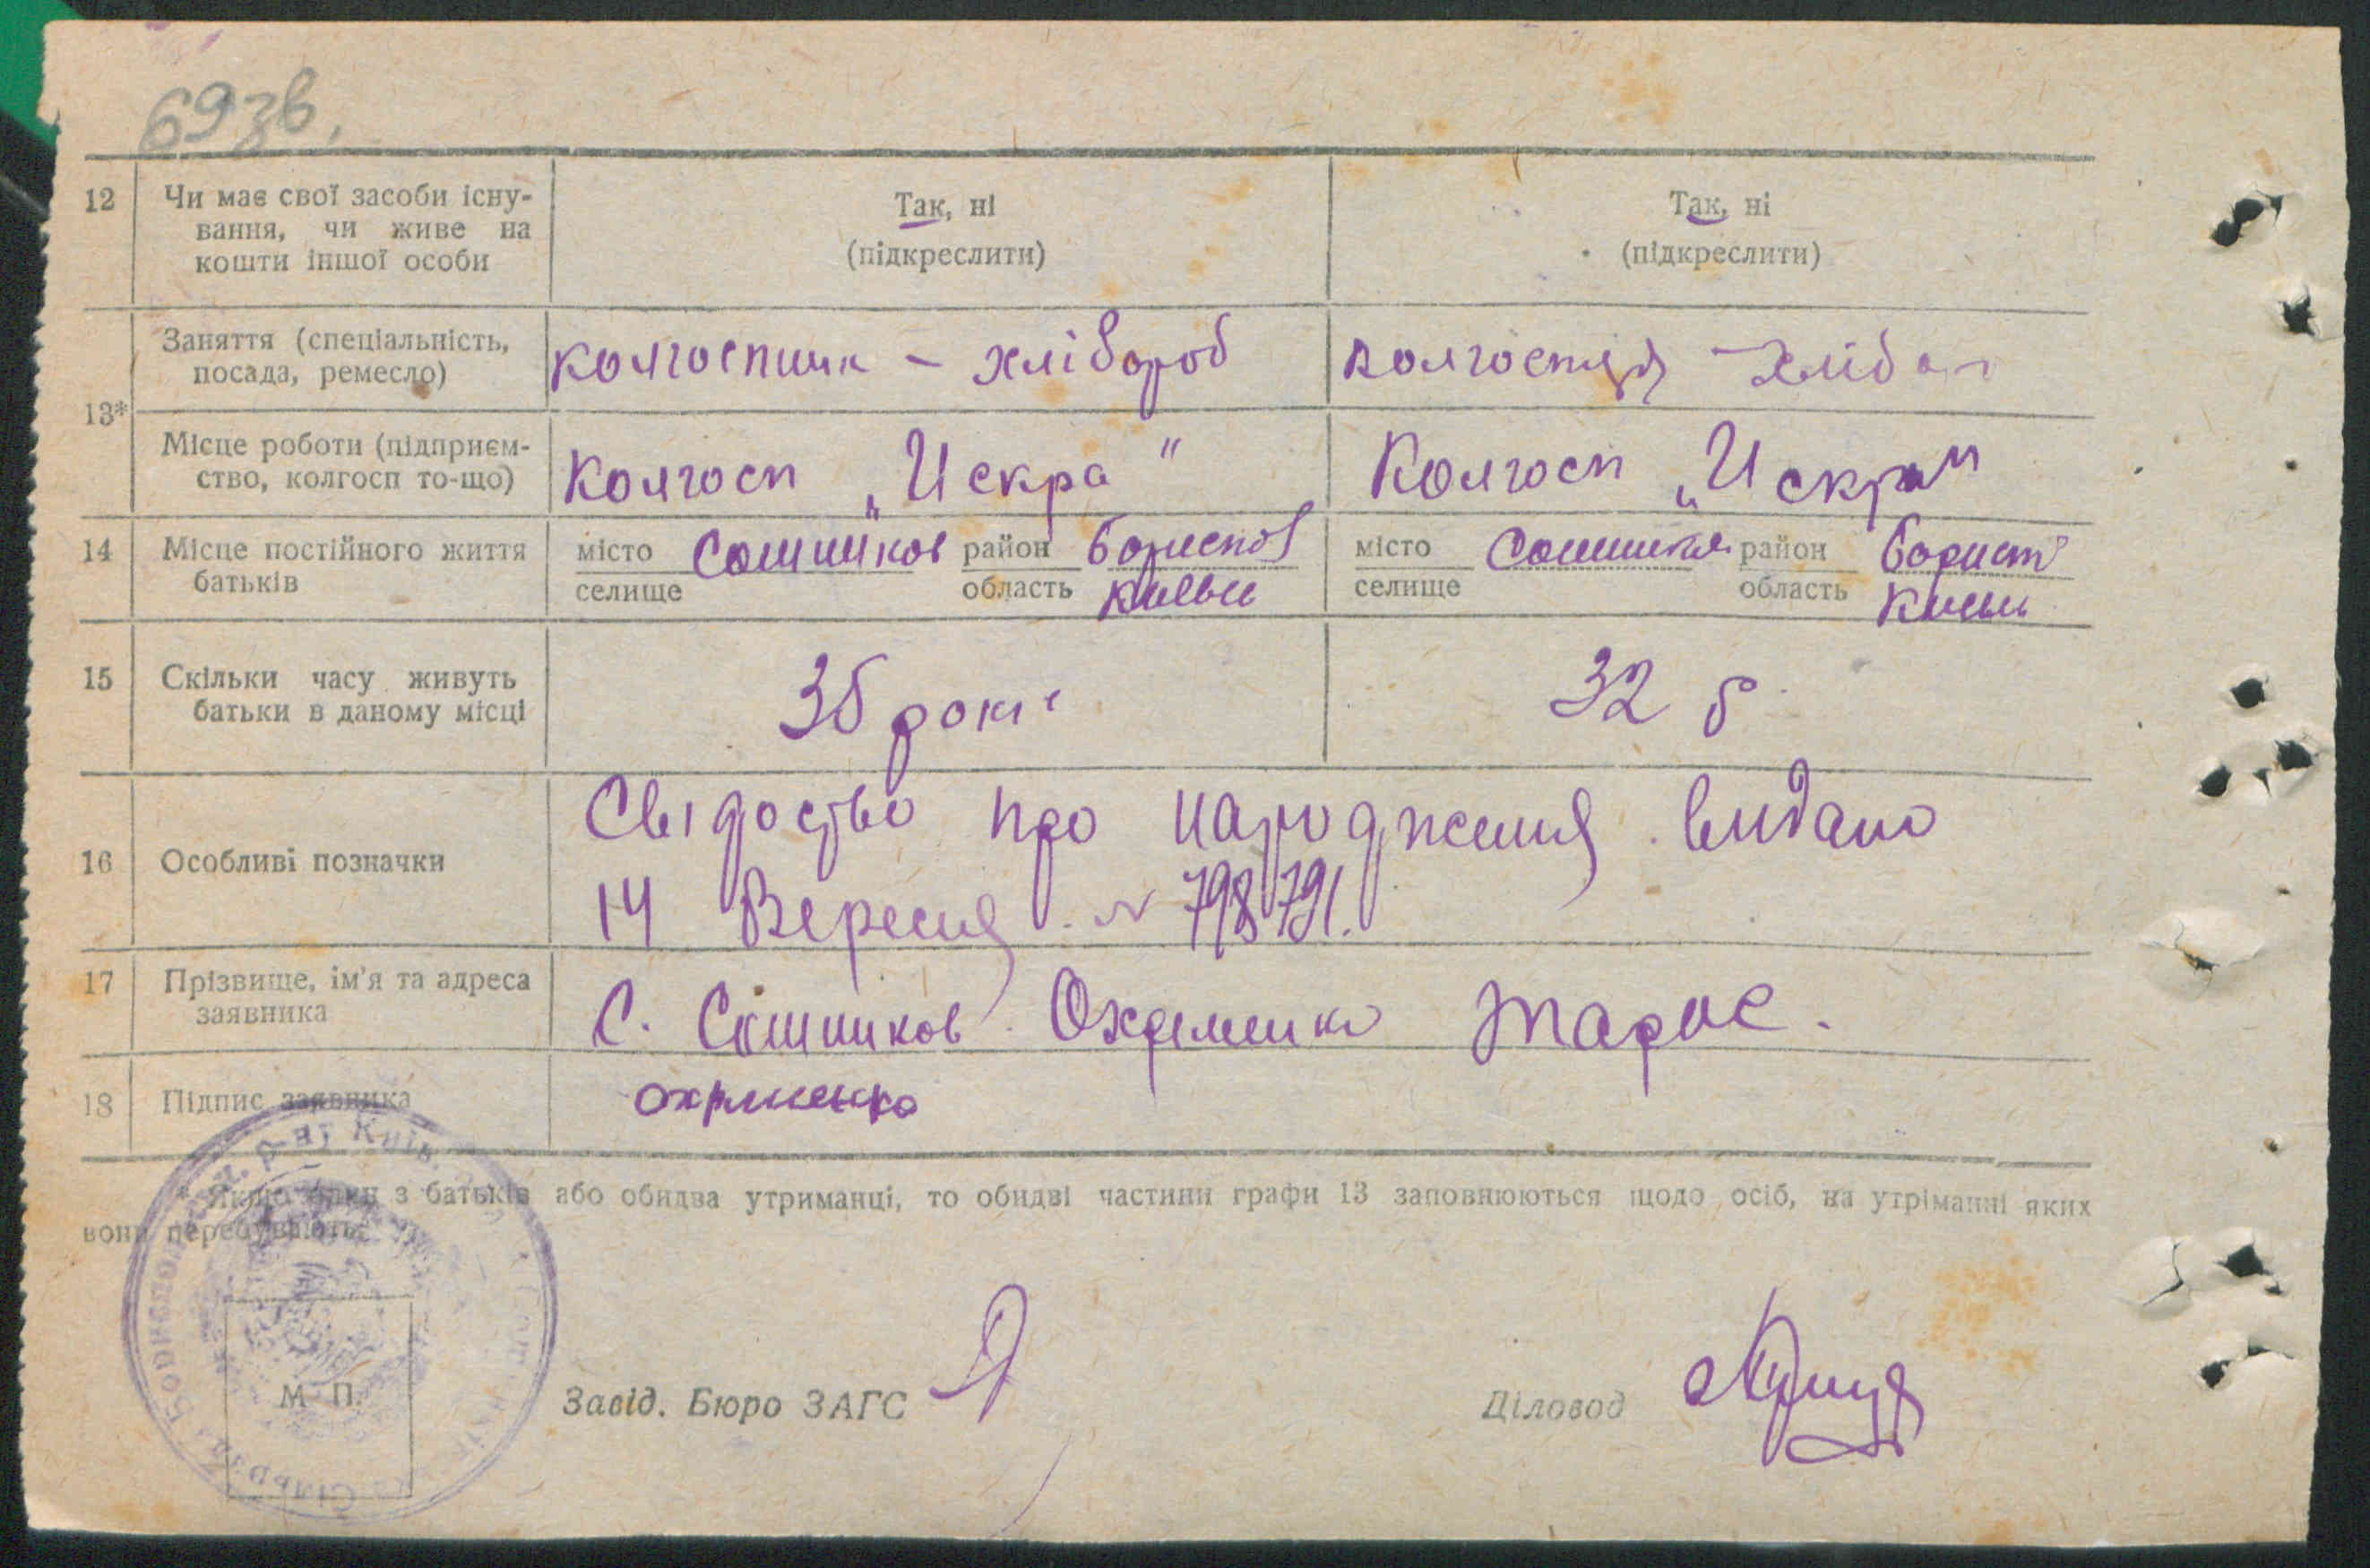 69зв.
12 Чи має свої засоби існу- Так, ні Так, ні
вання, чи живе на (підкреслити) (підкреслити)
кошти іншої особи
Заняття (спеціальність, колгоспник – хлібороб
посада, ремесло)
13*
Місце роботи (підприєм- Колгосп „Искра" Колгосп „Искра"
ство, колгосп то-що)
14 Місце постійного життя місто Сошників район Бориспол місто район
батьків селище область селище область
15 Скільки часу живуть 35 років 32 р
батьки в даному місці
Свідоство про народження видано
16 Особливі позначки 14 Вересня № 798791.
17 Прізвище, ім'я та адреса С. Сошников Охрименко Тарас.
заявника
18 Підпис заявника охрименко
* Якщо один з батьків або обидва утриманці, то обидві частини графи 13 заповнюються щодо осіб, на утріманні яких
вони перебувають.
М. П.
Завід. Бюро ЗАГС
Діловод